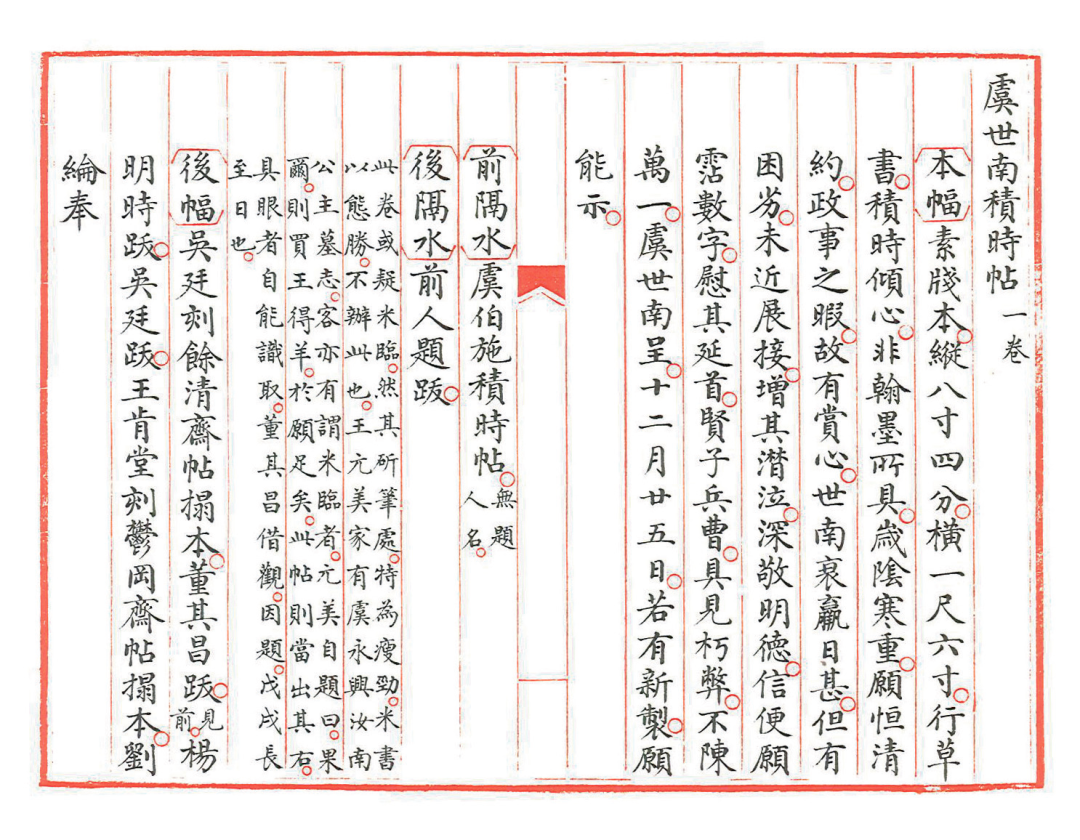 虞世南積時帖一卷
本幅素牋本。縱八寸四分。橫一尺六寸。行草
書。積時傾心。非翰墨所具。歲陰寒重。願恒清
約。政事之暇。故有賞心。世南衰羸日甚。但有
困劣。未近展接。增其潛泣。深敬明德。信便願
霑數字。慰其延首。賢子兵曹。具見朽弊。不陳
萬一。虞世南呈。十二月廿五日。若有新製。願
能示。
前隔水虞伯施積時帖。無題人名。
後隔水前人題跋。
此卷或疑米臨。然其斫筆處。特為瘦勁。米書
以態勝。不辦此也。王元美家有虞永興汝南
公主墓志。客亦有謂米臨者。元美自題曰。果
爾。則買王得羊。於願足矣。此帖則當出其右。
具眼者自能識取。董其昌借觀。因題。戊戌長
至日也。
後幅吳廷刻餘清齋帖搨本。董其昌跋。見前。楊
明時跋。吳廷跋。王肯堂刻鬱岡齋帖搨本。劉
綸奉